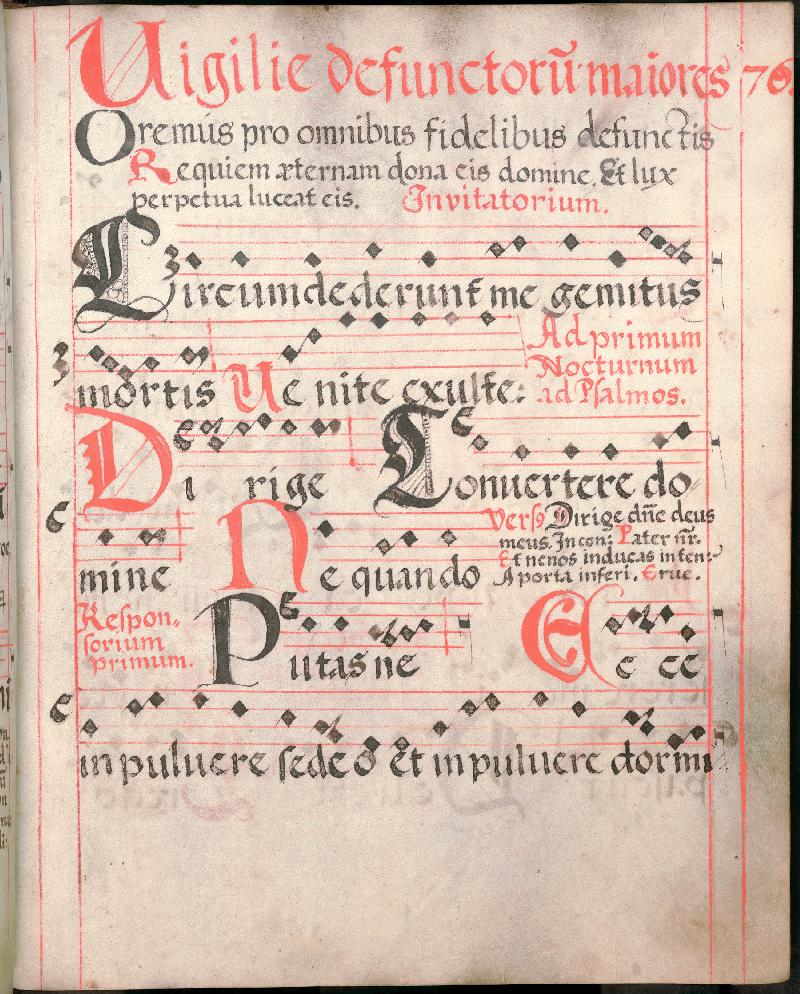 Uigilie defunctorū maiores 76.
Oremus pro omnibus fidelibus defunctis
Requiem æternam dona eis domine. Et lux
perpetua luceat eis. Inuitatorium.
Circumdederunt me gemitus
mortis Uenite exulte:
Ad primum
Nocturnum
ad Psalmos.
Dirige Conuertere do
mine Ne quando
Versꝰ Dirige dñe deus
meus. In con: Pater nr̄.
Et ne nos inducas in ten:
A porta inferi. Erue.
Respon-
sorium
primum.
Putasne Ecce
in puluere sedeo Et in puluere dormi